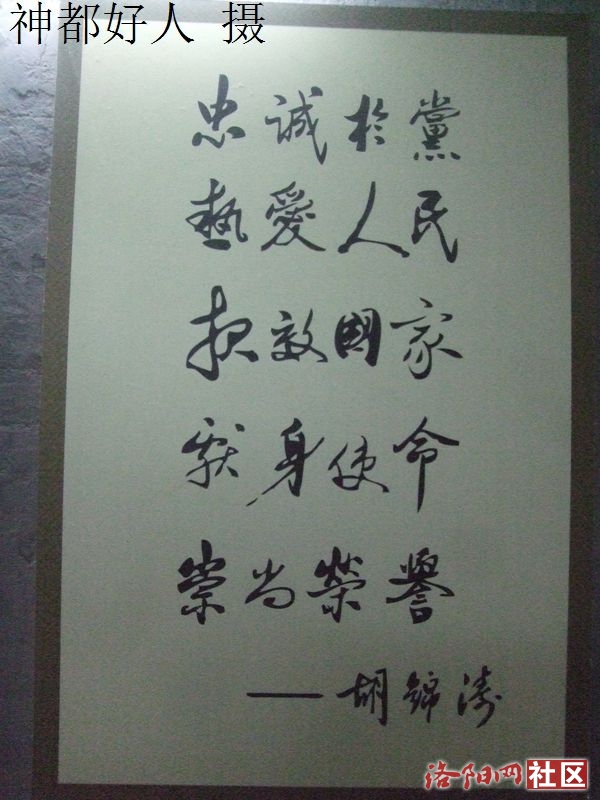 神都好人 摄
忠誠於黨
熱愛人民
报效國家
献身使命
崇尚榮譽
——胡錦濤
洛阳网社区